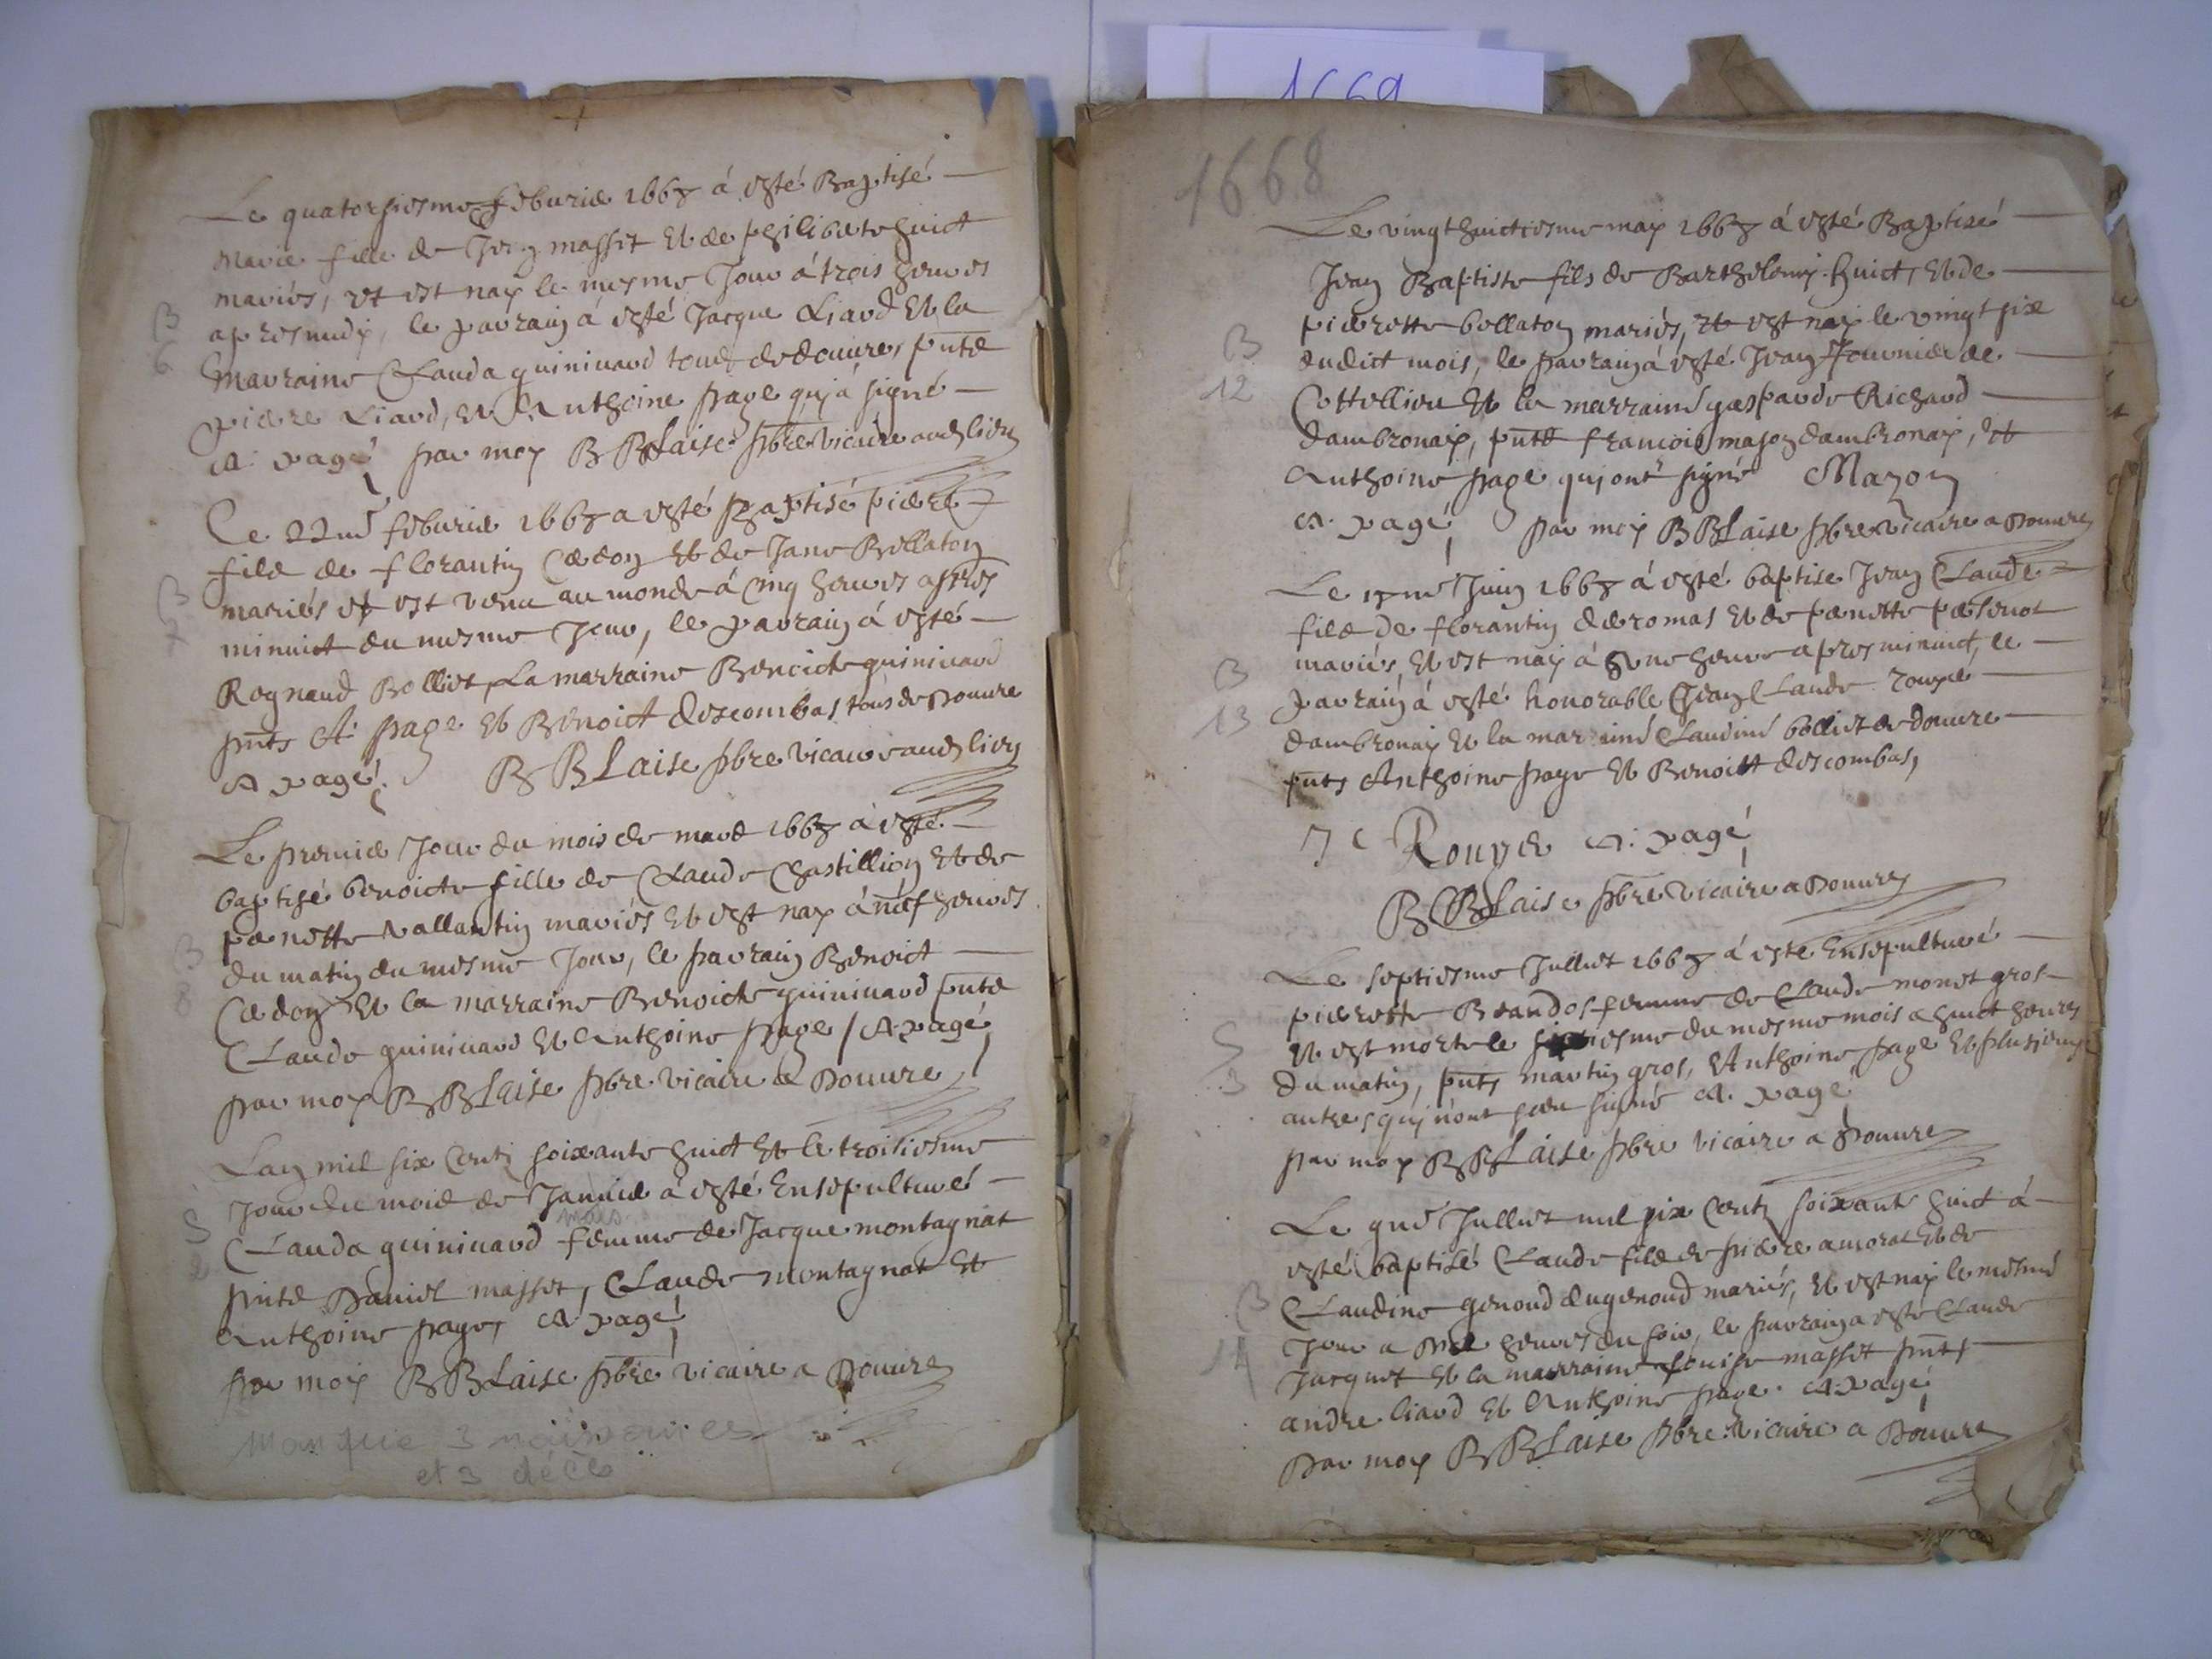 Le quatorsiesme feburier 1668 à esté Baptisé
Marie fille de Jean massit et de philiberte huict
mariés, et est nay le mesme Jour à trois heures
B
apres midy, le parrain à esté Jacque Liard et la
6
marraine Clauda guinivard tous de douvres, pnts
pierre Liard, et Anthoine page qui à signé
A. pagé par moy B BLaise pbre vicaire aud lieu
Le 22me feburier 1668 a esté Baptisé pierre
fils de florantin Cedon et de Jane Bollaton
B
mariés et est venu au monde à Cinq heures apres
7
minuict du mesme Jour, le parrain à esté
Regnaud Bolliet, La marraine Benoicte guinivard
pnts A. page et Benoict descombas tous de Douvre
A pagé. B BLaise pbre vicaire aud lieu
Le premier Jour du mois de mars 1668 à esté
baptisé benoicte fille de Claude Chastillion et de
pernette vallantin mariés et est nay à neuf heures
B
du matin du mesme Jour, le parrain Benoict
8
Cedon et la marraine Benoicte guinivard pnts
Claude guinivard et Anthoine page / A pagé
par moy B BLaise pbre vicaire a Douvre
Lan mil six Centz soixante huict et le troisiesme
Jour du mois de Janvier à esté Ensepulturé
S
mars
Clauda guinivard femme de Jacque montagnat
2
pnts Daniel masset, Claude montagnat et
Anthoine page, A. pagé
par moy B BLaise pbre vicaire a Douvre
Manque 3 naissances
et 3 décès
1669
1668
Le vingt huictiesme may 1668 à esté Baptisé
Jean Baptiste fils de Barthelemy huict, et de
pierrette bollaton mariés, et est nay le vingt six
B
dudict mois, le parrain à esté Jean fournier de
12
Cottellieu et la marraine gaspande Richard
dambronay, pnts francois mason dambronay, et
Anthoine page qui ont signé Mazon
A. pagé par moy B BLaise pbre vicaire a Douvre
Le me Juin 1668 à esté baptise Jean Claude
fils de florantin deromas et de pernette
mariés, et est nay à une heure apres minuict, le
B
parrain à esté honorable Jean Claude rouyé
13
dambronay et la marraine Claudine bolliet de douvre
pnts Anthoine page et Benoict descombas,
J C Rouyer A. pagé
B BLaise pbre vicaire a Douvre
Le septiesme Jullet 1668 à este Ensepulturé
pierrette Brandos femme de Claude monet gros
et est morte le sixiesme du mesme mois a huict heures
S
3
du matin, pnts martin gros, Anthoine page et plusieurs
autres qui nont sceu signé A. pagé
par moy B BLaise pbre vicaire a Douvre
Le 9me Jullet mil six Centz soixante huict à
esté baptisé Claude fils de pierre amorat et de
B
Claudine genoud dugenoud mariés, et est nay le mesme
Jour a heures du soir, le parrain a esté Claude
14
Jacquet et la marraine Louise masset pnts
andre liard et Anthoine page. A. pagé
par moy B BLaise pbre vicaire a Douvre